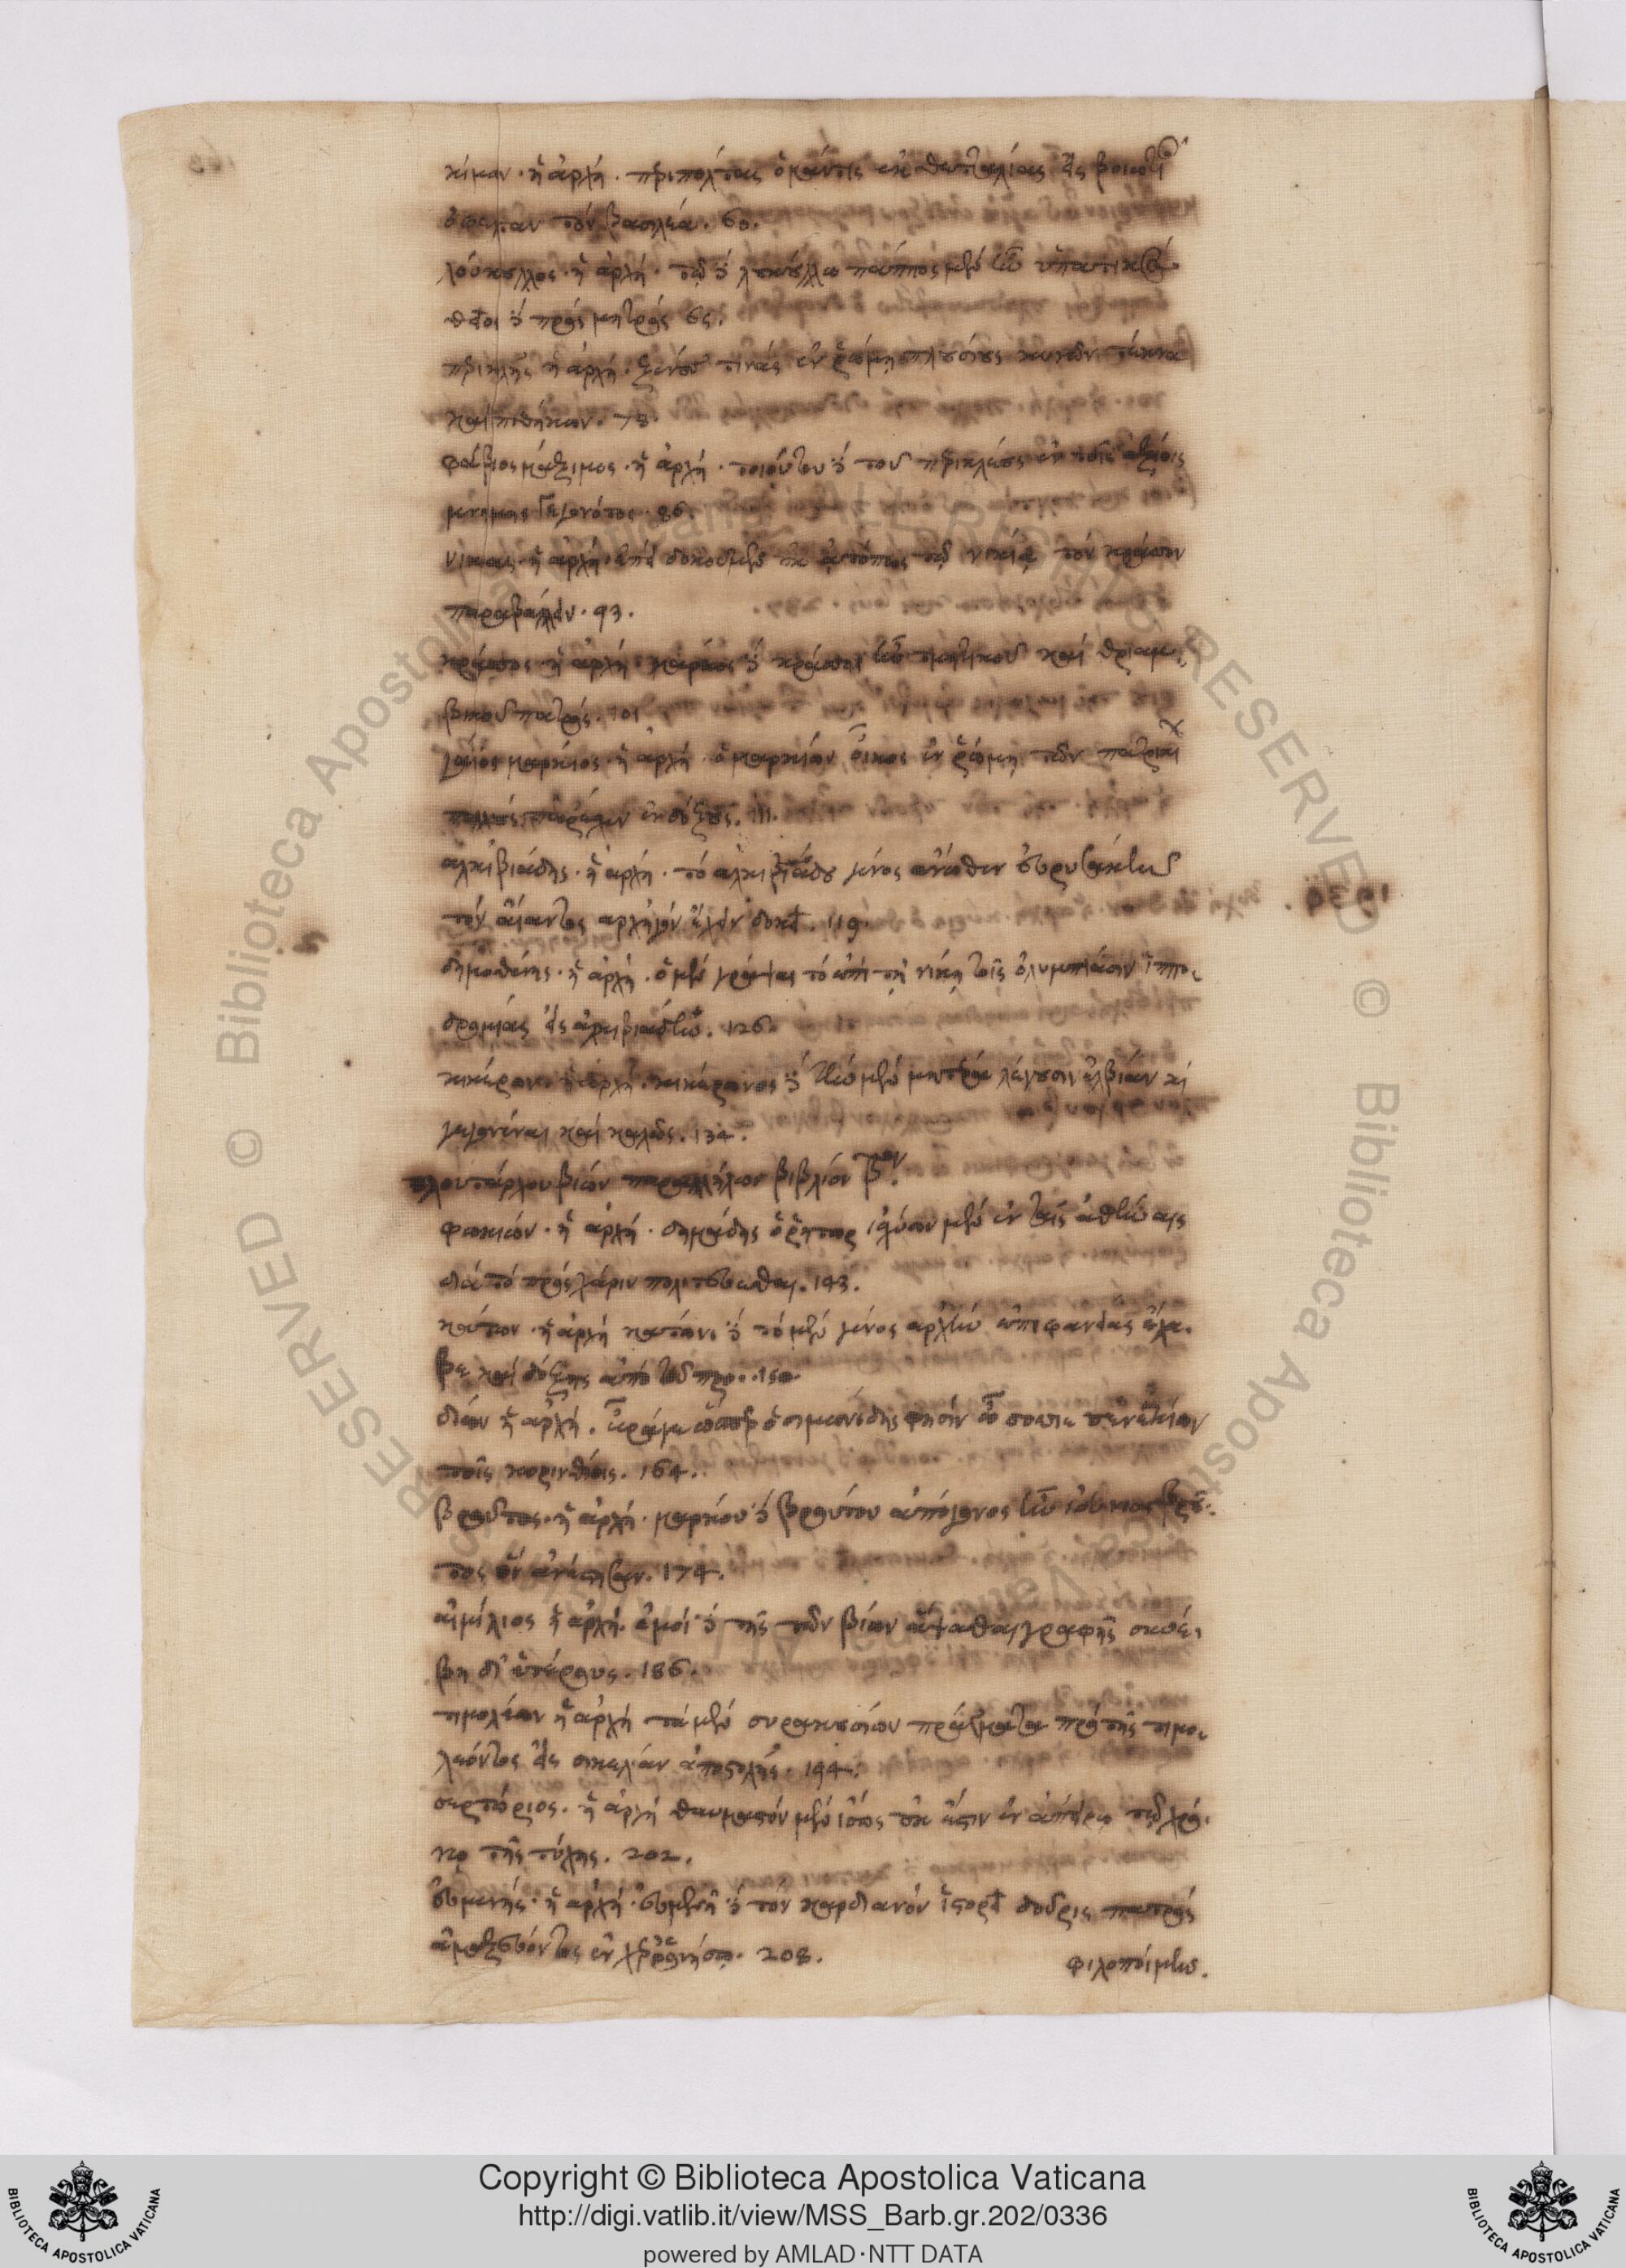 κίμων · ἡ ἀρχή · περιπόλτας ὁ μάντις ἐκ θετταλίας εἰς βοιωτί
ὀφέλταν τὸν βασιλέα. 60.
λούκουλλος · ἡ ἀρχή · τῷ δὲ λουκούλλω πάππος μὲν ἦν ὑπατικὸς
θεῖος δὲ πρὸς μητρὸς 65.
περικλῆς ἡ ἀρχή. ξένους τινὰς ἐν ῥώμῃ πλουσίους κυνῶν τέκνα
καὶ πιθήκων. 78
φάβιος μάξιμος · ἡ ἀρχή · τοιούτου δὲ τοῦ περικλέους ἐν τοῖς ἀξίοις
μνήμης γεγονότος. 86.
νικίας · ἡ ἀρχή · ἐπεὶ δοκοῦμεν οὐκ ἀτόπως τῷ νικίᾳ τὸν κράσσον
παραβάλλειν. 93.
κράσσος · ἡ ἀρχή · μάρκος δὲ κράσσος ἦν τιμητικοῦ καὶ θριαμ
βικοῦ πατρός. 101
γάϊος μάρκιος · ἡ ἀρχή · ὁ μαρκίων οἶκος ἐν ῥώμῃ τῶν πατρικί
πολλοὺς παρέσχεν ἐνδόξους. 111.
ἀλκιβιάδης · ἡ ἀρχή · τὸ ἀλκιβιάδου γένος ἄνωθεν εὐρυσάκην
τὸν αἴαντος ἀρχηγὸν ἔχειν δοκεῖ. 119.
δημοσθένης · ἡ ἀρχή · ὁ μὲν γράψας τὸ ἐπὶ τῇ νίκῃ τῆς ὀλυμπιάσιν ἱππο
δρομίας εἰς ἀλκιβιάδην. 126.
κικέρων · ἡ ἀρχή · κικέρωνος δὲ τὴν μὲν μητέρα λέγουσιν ἐλβίαν κὶ
γεγονέναι καὶ καλῶς. 134.
πλουτάρχου βίων παραλλήλων βιβλίον βον.
φωκίων · ἡ ἀρχή · δημάδης ὁ ῥήτωρ ἰσχύων μὲν ἐν ταῖς ἀθήναις
διὰ τὸ πρὸς χάριν πολιτεύεσθαι. 143.
κάτων · ἡ ἀρχή κάτωνι δὲ τὸ μὲν γένος ἀρχὴν ἐπιφανείας ἔλα
βε καὶ δόξης ἀπὸ τοῦ προ. 150.
δίων ἡ ἀρχή. ἆρά γε ὥσπερ ὁ σιμωνίδης φησὶν ὦ σόσσιε σενεκίων
τοῖς κορινθίοις. 164.
βροῦτος · ἡ ἀρχή · μάρκου δὲ βρούτου ἀπόγονος ἦν ἰούνιος βρού
τος ὃν ἀνέστησαν. 174.
αἰμίλιος ἡ ἀρχή. ἐμοὶ δὲ τῆς τῶν βίων ἅψασθαι γραφῆς συνέ
βη δι' ἑτέρους. 186.
τιμολέων ἡ ἀρχή τὰ μὲν συρακουσίων πράγματα πρὸ τῆς τιμο
λέοντος εἰς σικελίαν ἀποστολῆς. 194.
σερτώριος. ἡ ἀρχή θαυμαστὸν μὲν ἴσως οὐκ ἔστιν ἐν ἀπείρῳ τῷ χρό
νῳ τῆς τύχης. 202.
εὐμενής · ἡ ἀρχή · εὐμένη δὲ τὸν καρδιανὸν ἱστορεῖ δοῦρις πατρὸς
ἁμαξεύοντος ἐν χερρονήσῳ. 208.
φιλοποίμην.
Copyright © Biblioteca Apostolica Vaticana
http://digi.vatlib.it/view/MSS_Barb.gr.202/0336
powered by AMLAD·NTT DATA